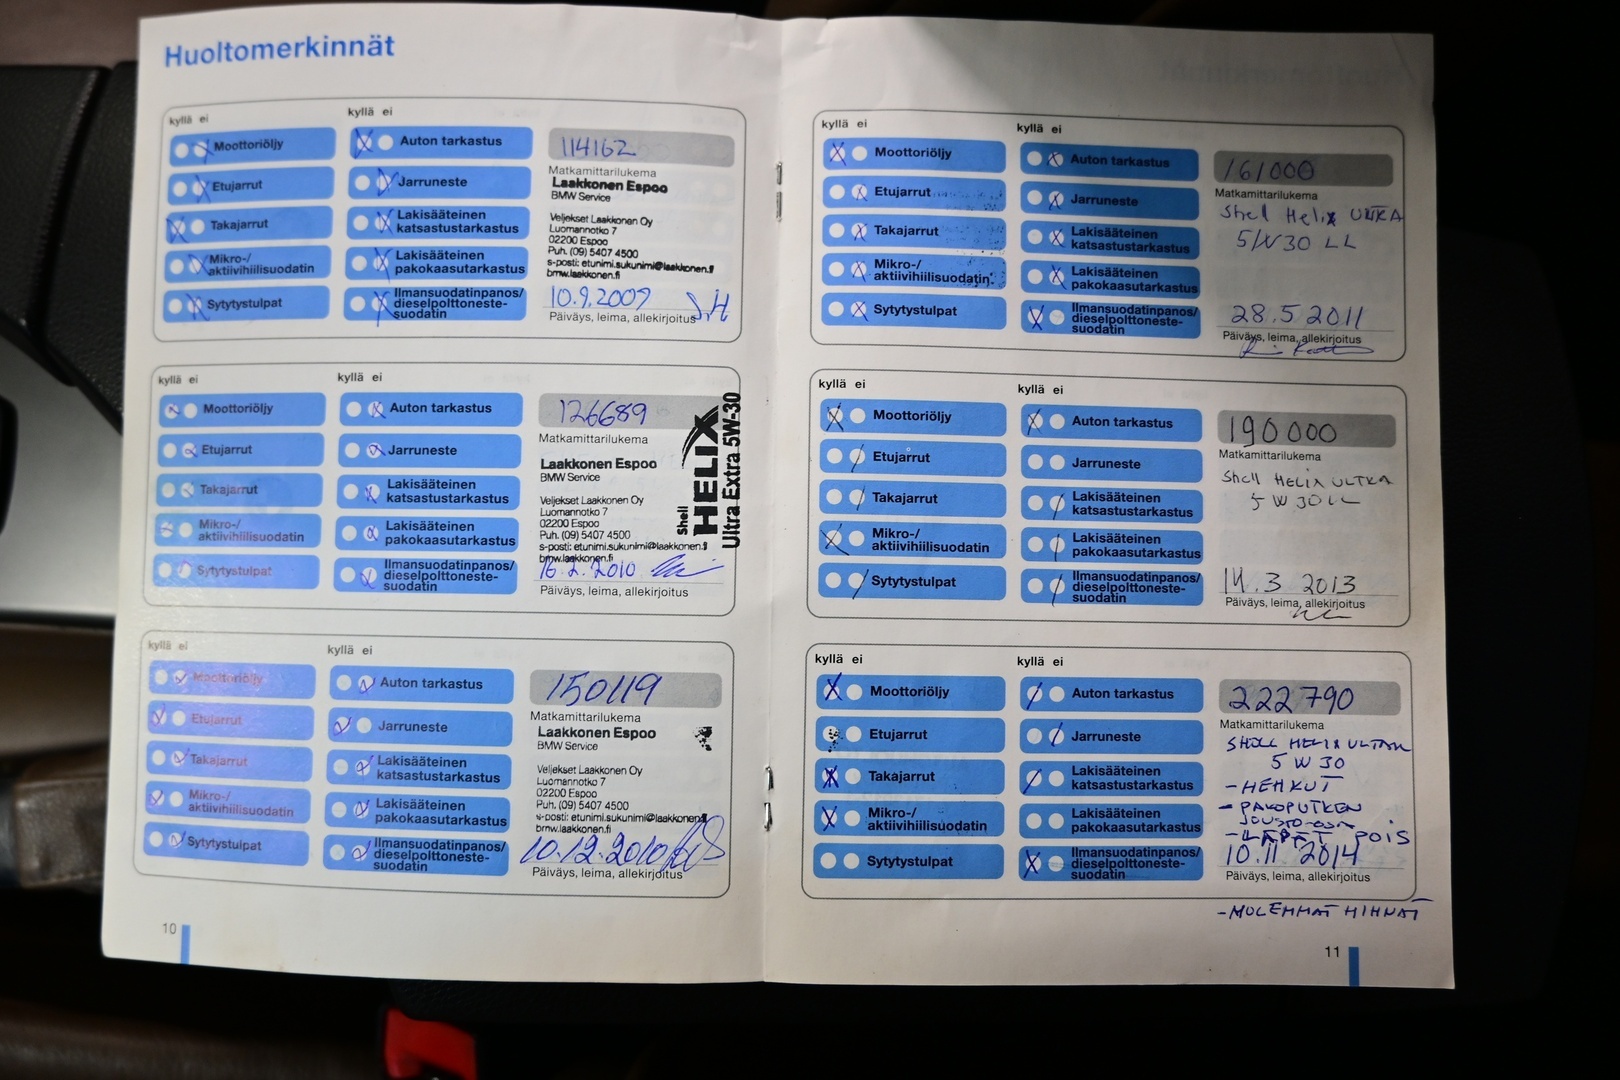 Huoltomerkinnät
kyllä ei
kyllä ei
Moottoriöljy
Etujarrut
Takajarrut
Mikro-/
aktiivihiilisuodatin
Sytytystulpat
Auton tarkastus
Jarruneste
Lakisääteinen
katsastustarkastus
Lakisääteinen
pakokaasutarkastus
Ilmansuodatinpanos/
dieselpolttoneste-
suodatin
114162
Matkamittarilukema
Laakkonen Espoo
BMW Service
Veljekset Laakkonen Oy
Luomannotko 7
02200 Espoo
Puh. (09) 5407 4500
s-posti: etunimi.sukunimi@laakkonen.fi
bmw.laakkonen.fi
10.9.2009
Päiväys, leima, allekirjoitus
kyllä ei
kyllä ei
Moottoriöljy
Etujarrut
Takajarrut
Mikro-/
aktiivihiilisuodatin
Sytytystulpat
Auton tarkastus
Jarruneste
Lakisääteinen
katsastustarkastus
Lakisääteinen
pakokaasutarkastus
Ilmansuodatinpanos/
dieselpolttoneste-
suodatin
126689
Matkamittarilukema
Laakkonen Espoo
BMW Service
Veljekset Laakkonen Oy
Luomannotko 7
02200 Espoo
Puh. (09) 5407 4500
s-posti: etunimi.sukunimi@laakkonen.fi
bmw.laakkonen.fi
16.2.2010
Päiväys, leima, allekirjoitus
Shell
HELIX
Ultra Extra 5W-30
kyllä ei
kyllä ei
Moottoriöljy
Etujarrut
Takajarrut
Mikro-/
aktiivihiilisuodatin
Sytytystulpat
Auton tarkastus
Jarruneste
Lakisääteinen
katsastustarkastus
Lakisääteinen
pakokaasutarkastus
Ilmansuodatinpanos/
dieselpolttoneste-
suodatin
150119
Matkamittarilukema
Laakkonen Espoo
BMW Service
Veljekset Laakkonen Oy
Luomannotko 7
02200 Espoo
Puh. (09) 5407 4500
s-posti: etunimi.sukunimi@laakkonen.fi
bmw.laakkonen.fi
10.12.2010
Päiväys, leima, allekirjoitus
10
kyllä ei
kyllä ei
Moottoriöljy
Etujarrut
Takajarrut
Mikro-/
aktiivihiilisuodatin
Sytytystulpat
Auton tarkastus
Jarruneste
Lakisääteinen
katsastustarkastus
Lakisääteinen
pakokaasutarkastus
Ilmansuodatinpanos/
dieselpolttoneste-
suodatin
161000
Matkamittarilukema
Shell Helix ULTRA
5W30 LL
28.5.2011
Päiväys, leima, allekirjoitus
kyllä ei
kyllä ei
Moottoriöljy
Etujarrut
Takajarrut
Mikro-/
aktiivihiilisuodatin
Sytytystulpat
Auton tarkastus
Jarruneste
Lakisääteinen
katsastustarkastus
Lakisääteinen
pakokaasutarkastus
Ilmansuodatinpanos/
dieselpolttoneste-
suodatin
190000
Matkamittarilukema
Shell HELIX ULTRA
5W30LL
14.3 2013
Päiväys, leima, allekirjoitus
kyllä ei
kyllä ei
Moottoriöljy
Etujarrut
Takajarrut
Mikro-/
aktiivihiilisuodatin
Sytytystulpat
Auton tarkastus
Jarruneste
Lakisääteinen
katsastustarkastus
Lakisääteinen
pakokaasutarkastus
Ilmansuodatinpanos/
dieselpolttoneste-
suodatin
222790
Matkamittarilukema
SHELL HELIX ULTRA
5W30
-HEHKUT
-PAKOPUTKEN
JOUSTO-OSA
-LÄPÄT POIS
10.11 2014
Päiväys, leima, allekirjoitus
-MOLEMMAT HIHNAT
11